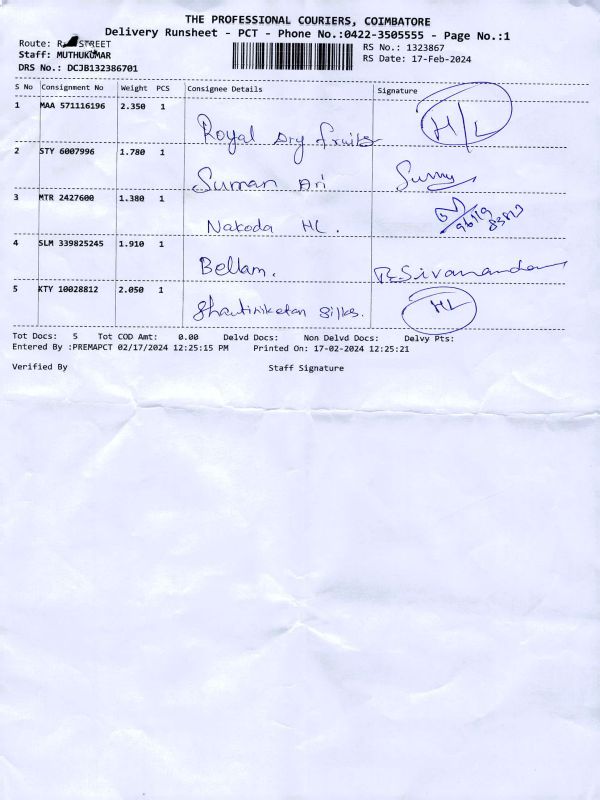 THE PROFESSIONAL COURIERS, COIMBATORE
Delivery Runsheet - PCT - Phone No.:0422-3505555 - Page No.:1
Route: STREET
Staff: MUTHUKUMAR
DRS No.: DCJB132386701
RS No.: 1323867
RS Date: 17-Feb-2024
S No Consignment No Weight PCS Consignee Details Signature
1 MAA 571116196 2.350 1 Royal Dry fruits H/L
2 STY 6007996 1.780 1 Suman Ari Sunny
3 MTR 2427600 1.380 1 Nakoda HL.
4 SLM 339825245 1.910 1 Bellam. R Sivanandan
5 KTY 10028812 2.050 1 Shantiniketan Silks. HL
Tot Docs: 5 Tot COD Amt: 0.00 Delvd Docs: Non Delvd Docs: Delvy Pts:
Entered By :PREMAPCT 02/17/2024 12:25:15 PM Printed On: 17-02-2024 12:25:21
Verified By Staff Signature